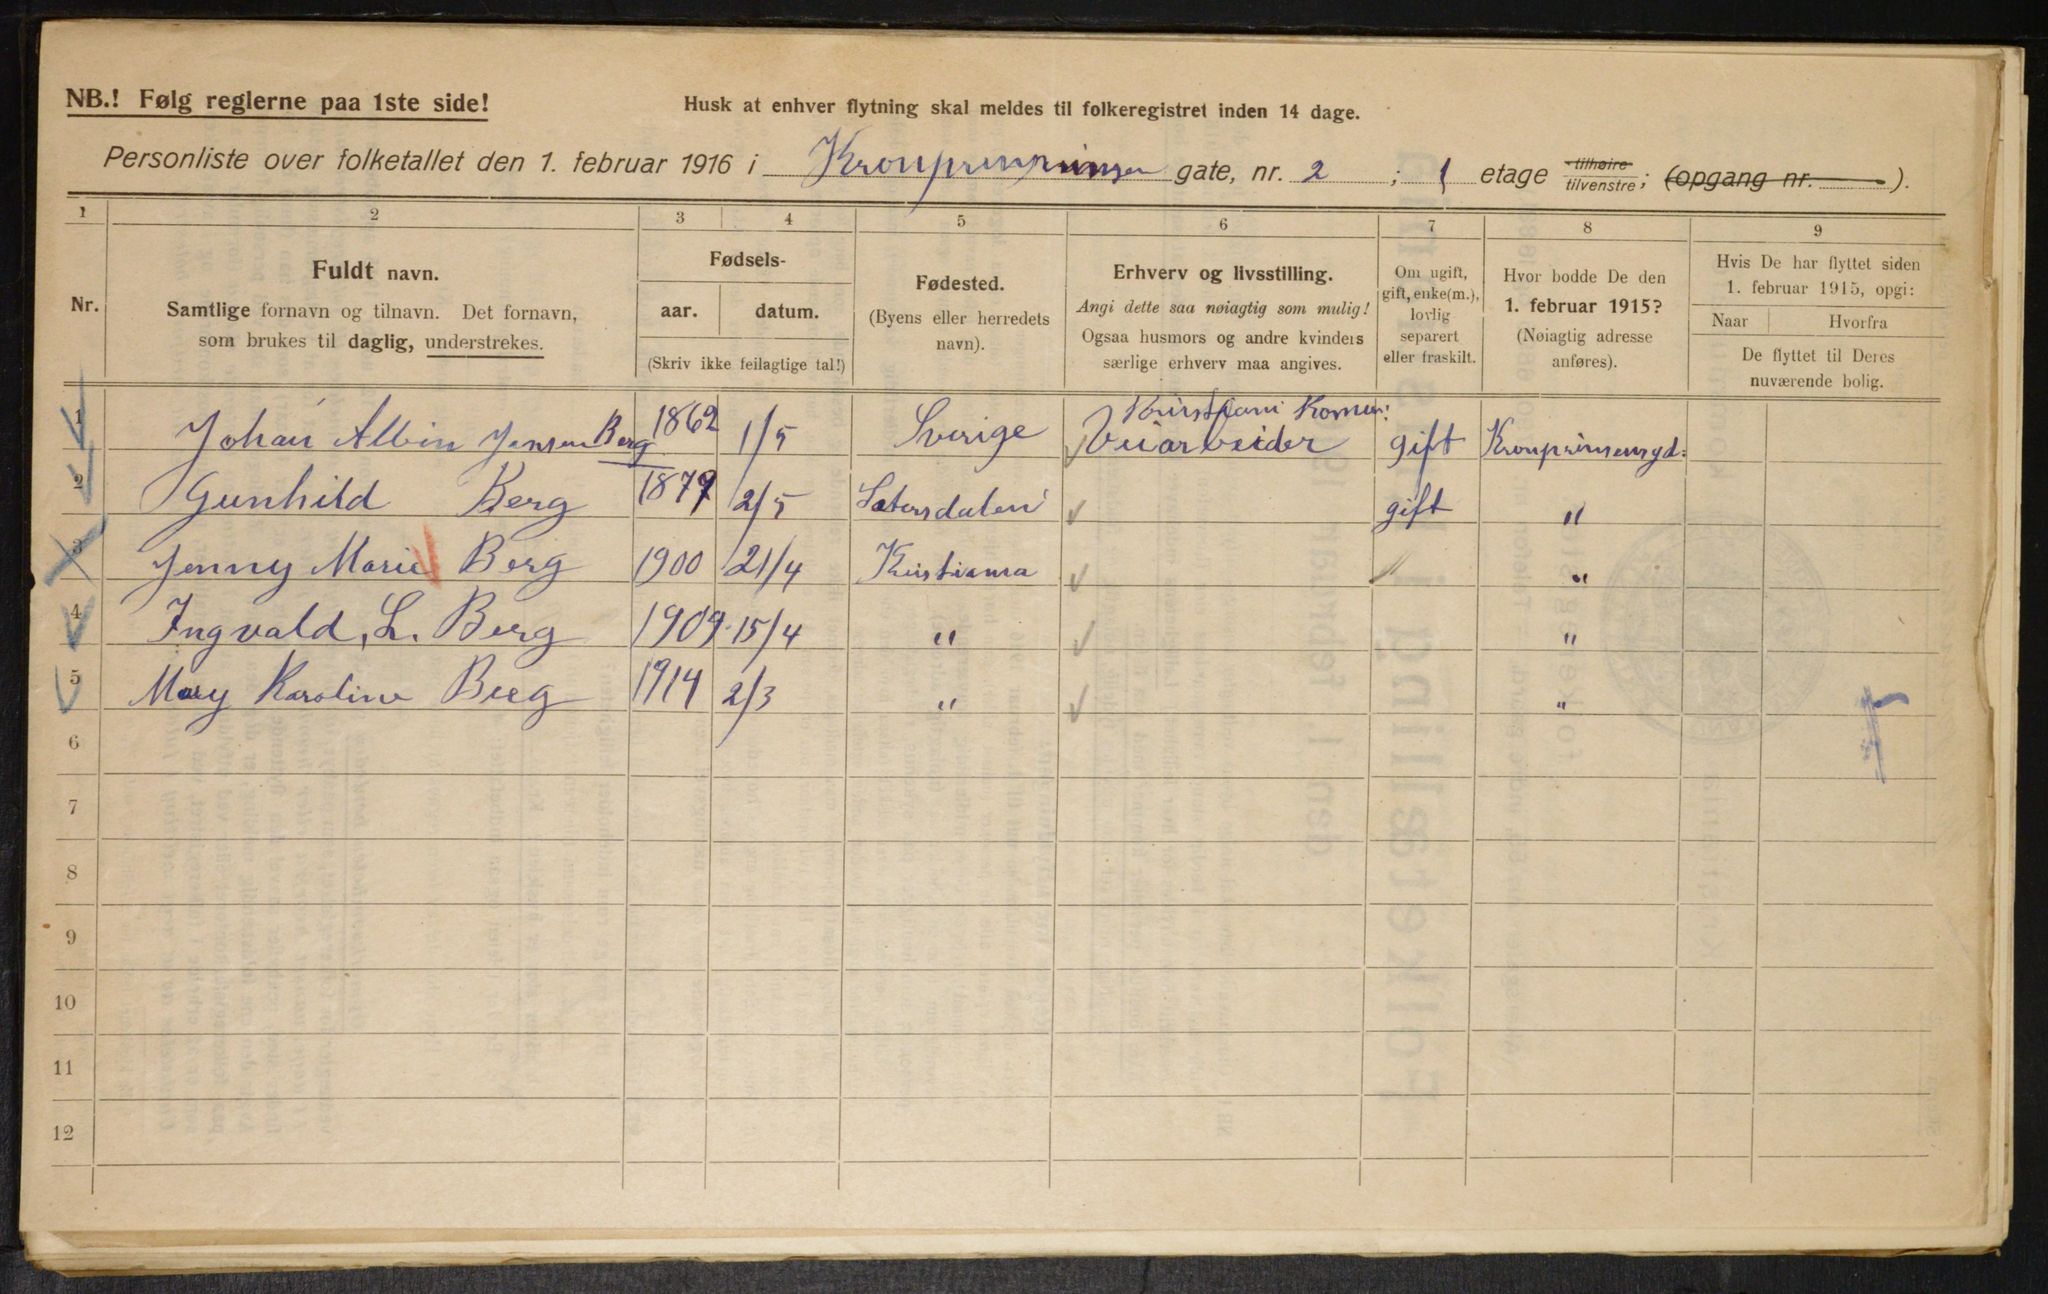 NB.! Følg reglerne paa 1ste side!
Husk at enhver flytning skal meldes til folkeregistret inden 14 dage.
Personliste over folketallet den 1. februar 1916 i gate, nr. 2 ; 1 etage tilhøire tilvenstre; (opgang nr. ).
1 2 3 4 5 6 7 8 9
Nr.
Fuldt navn.
Samtlige fornavn og tilnavn. Det fornavn,
som brukes til daglig, understrekes.
Fødsels-
aar. datum.
(Skriv ikke feilagtige tal!)
Fødested.
(Byens eller herredets
navn).
Erhverv og livsstilling.
Angi dette saa nøiagtig som mulig!
Ogsaa husmors og andre kvinders
særlige erhverv maa angives.
Om ugift,
gift, enke(m.),
lovlig
separert
eller fraskilt.
Hvor bodde De den
1. februar 1915?
(Nøiagtig adresse
anføres).
Hvis De har flyttet siden
1. februar 1915, opgi:
Naar Hvorfra
De flyttet til Deres
nuværende bolig.
1 Johan Albin Jensen Berg 1862 1/5 Sverige Veiarbeider gift
2 Gunhild Berg 1879 2/5 Setersdalen gift "
3 Jenny Marie Berg 1900 21/4 Kristiania "
4 Ingvald. L. Berg 1909 15/4 " "
5 Mary Karoline Berg 1914 2/3 " "
6
7
8
9
10
11
12